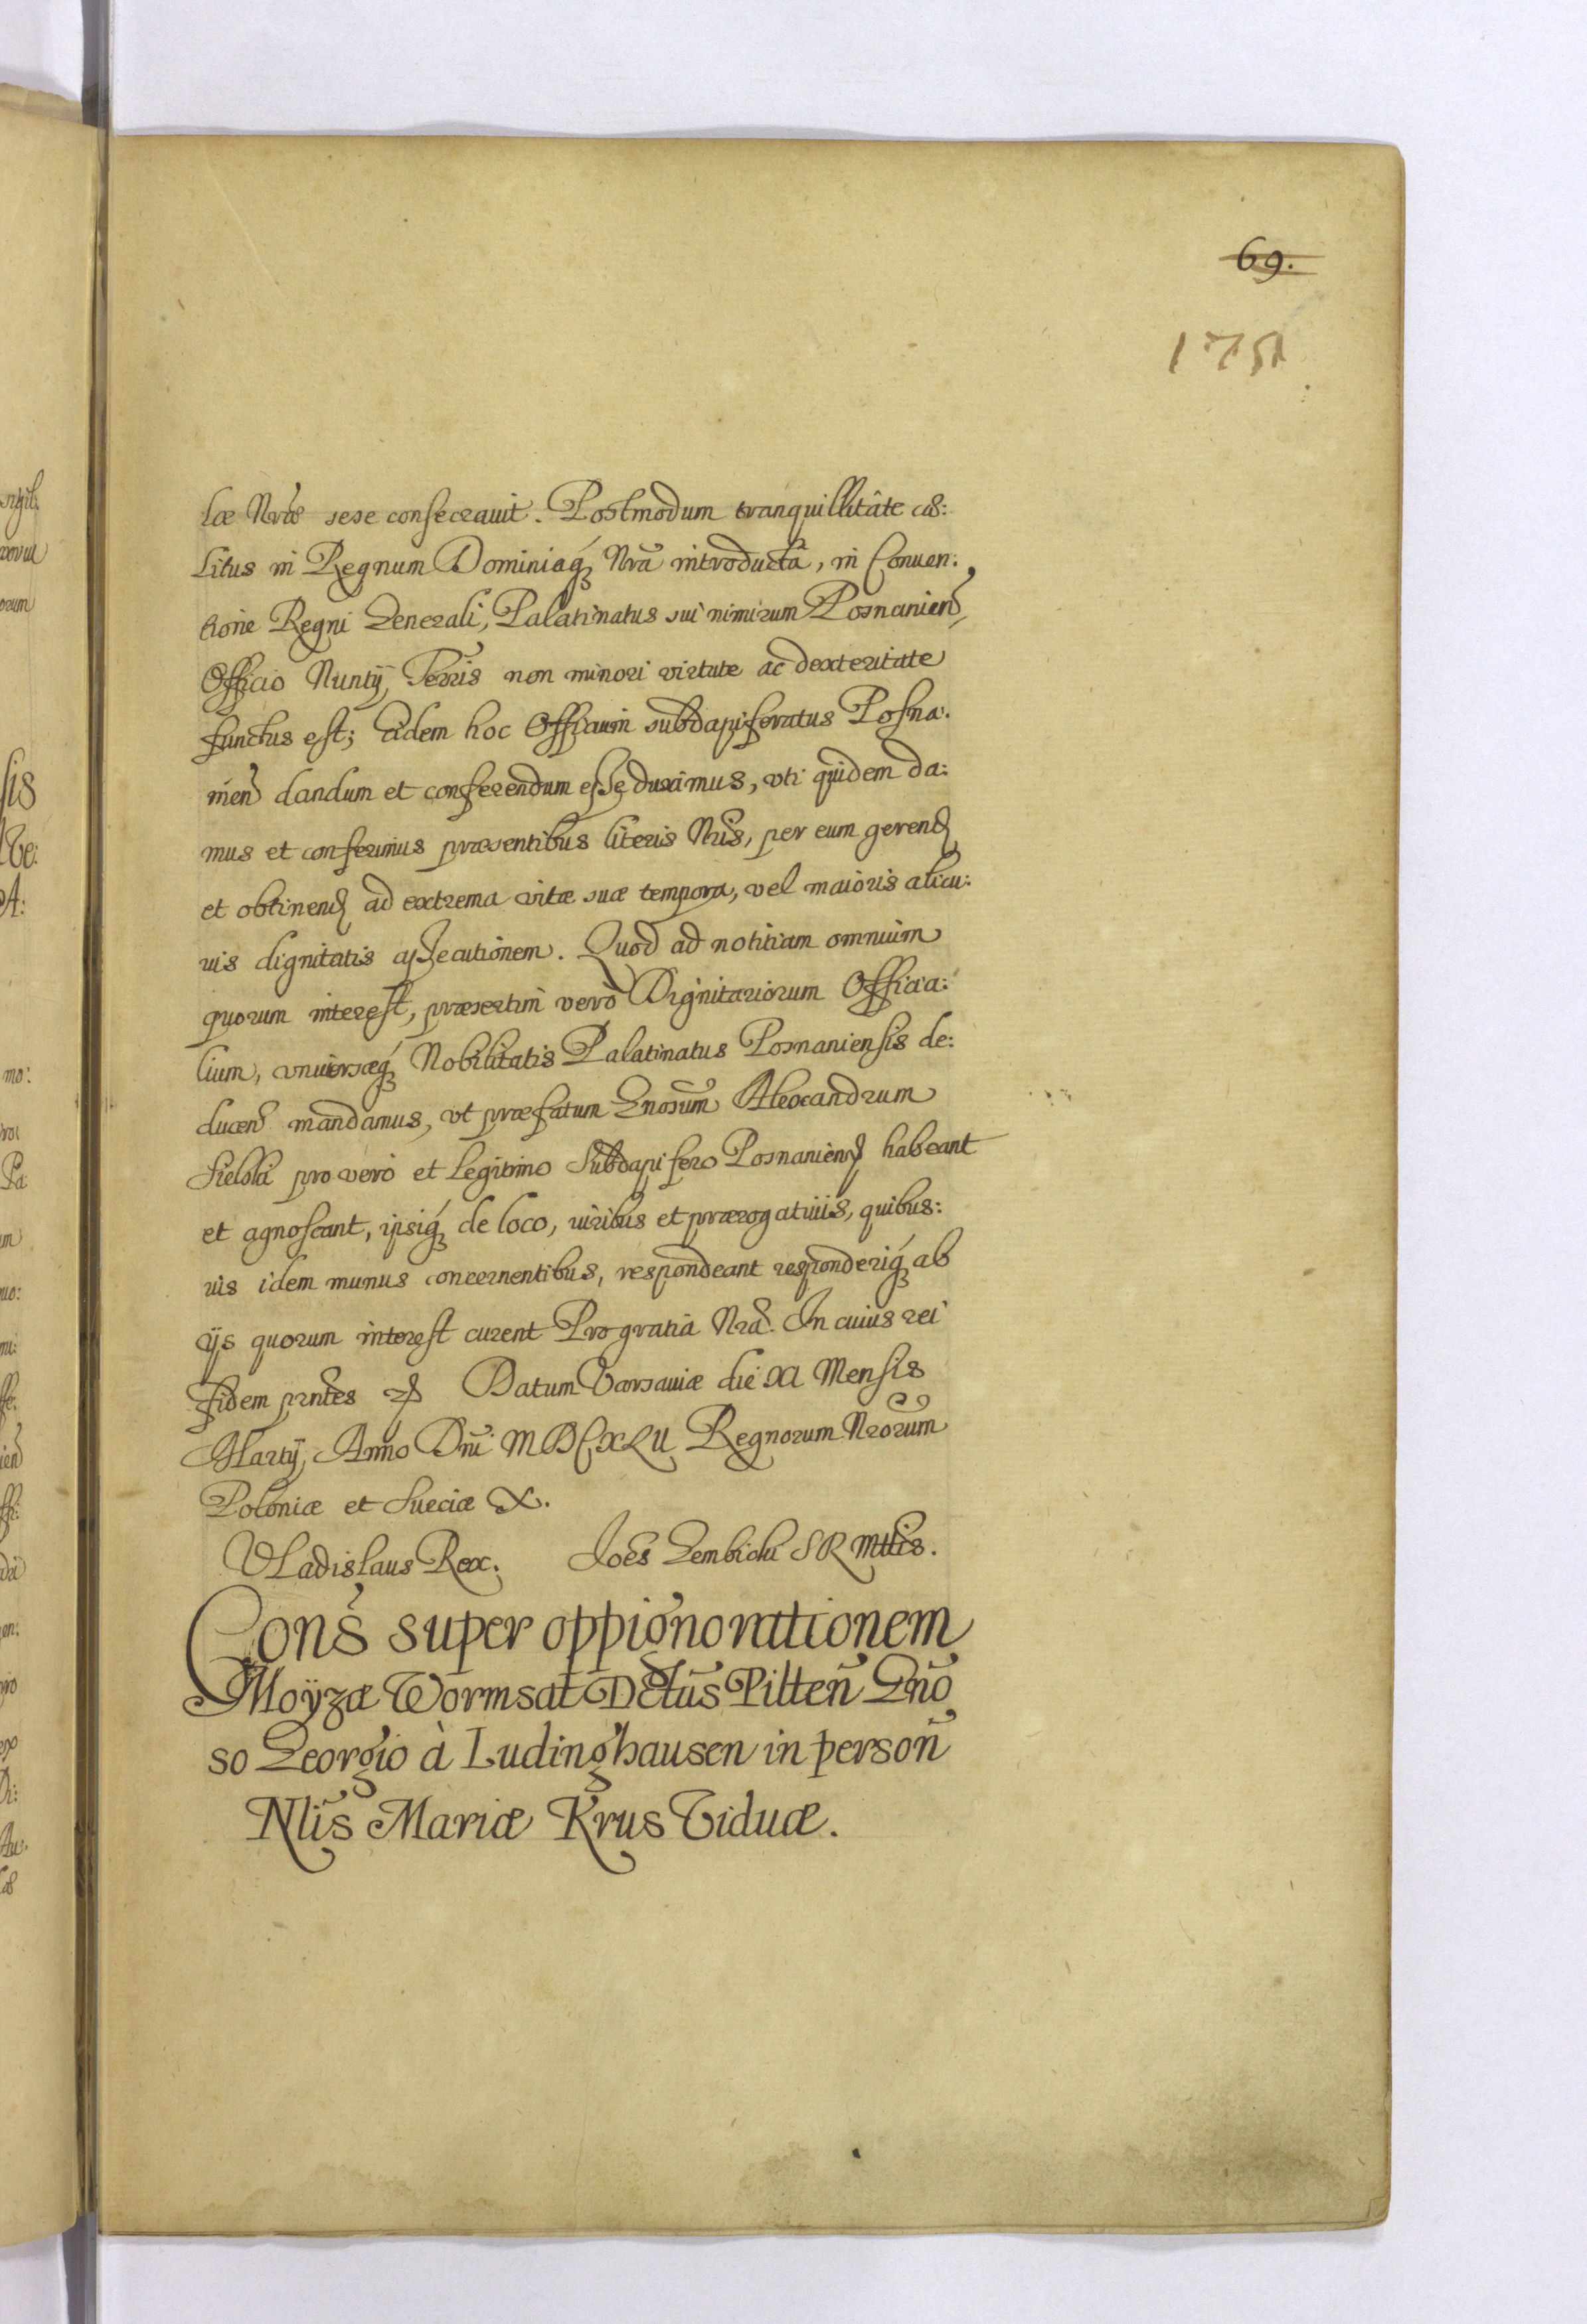 69.
1751
læ Nræ sese consecrauit. Postmodum tranquillitâte cæ:
litus in Regnum Dominiaq́ꝫ Nrã introductâ, in Conuen:
tione Regni Generali, Palatinatus sui nimirum Posnanien̄,
Officio Nuntij Terris non minori virtute ac dexteritate
functus est; eidem hoc Officium subdapiferatus Posna:
nien̄ dandum et conferendum esse duximus, vti quidem da:
mus et conferimus præsentibus literis Nrĩs, per eum gerend
et obtinend ad extrema vitæ suæ tempora, vel maioris alicu:
uis dignitatis assecutionem. Quod ad notitiam omnium
quorum interest, præsertim verò Dignitariorum Officia:
lium, vniuersæq́ꝫ Nobilitatis Palatinatus Posnaniensis de:
ducen̄ mandamus, vt præfatum Gnosum̃ Alexandrum
Sielski pro vero et legitimo Subdapifero Posnanien̄ habeant
et agnoscant, ipsiq́ꝫ de loco, iuribus et prærogatiuis, quibus:
uis idem munus concernentibus, respondeant responderiq́ꝫ ab
ijs quorum interest curent Pro gratia Nrã. In cuius rei
fidem prñtes ꝛc Datum Varsauiæ die XI Mensis
Martij, Anno Dñi MDCXLII Regnorum Nrorum̃
Poloniæ et Sueciæ &.
Vladislaus Rex. Joẽs Gembicki SR Mttis.
Cons̃ super oppignorationem
Moÿzæ Wormsat Dctũs Pilten̄ Gnõ
so Georgio à Ludinghausen in person̄
Nlĩs Mariæ Krus Viduæ.